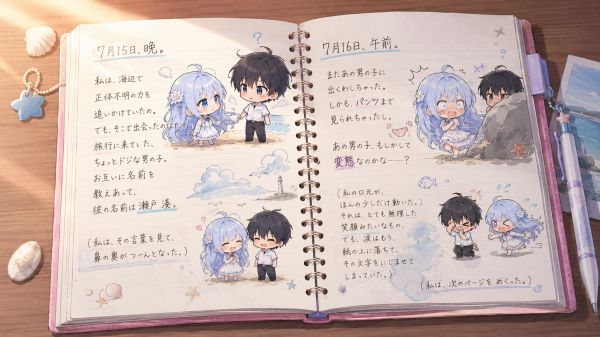 7月15日、晩。
私は、海辺で
正体不明の力を
追いかけていたの。
でも、そこで出会ったのは
旅行に来ていた、
ちょっとドジな男の子。
お互いに名前を
教えあって、
彼の名前は瀬戸 湊。
(私は、その言葉を見て、
鼻の奥がつーんとなった。)
?
7月16日、午前。
またあの男の子に
出くわしちゃった。
しかも、パンツまで
見られちゃったし。
あの男の子、もしかして
変態なのかな……?
(私の口元が、
ほんの少しだけ動いた。
それは、とても無理した
笑顔みたいなもの。
でも、涙はもう、
紙の上に落ちて、
その文字をにじませて
しまっていた。)
(私は、次のページをめくった。)